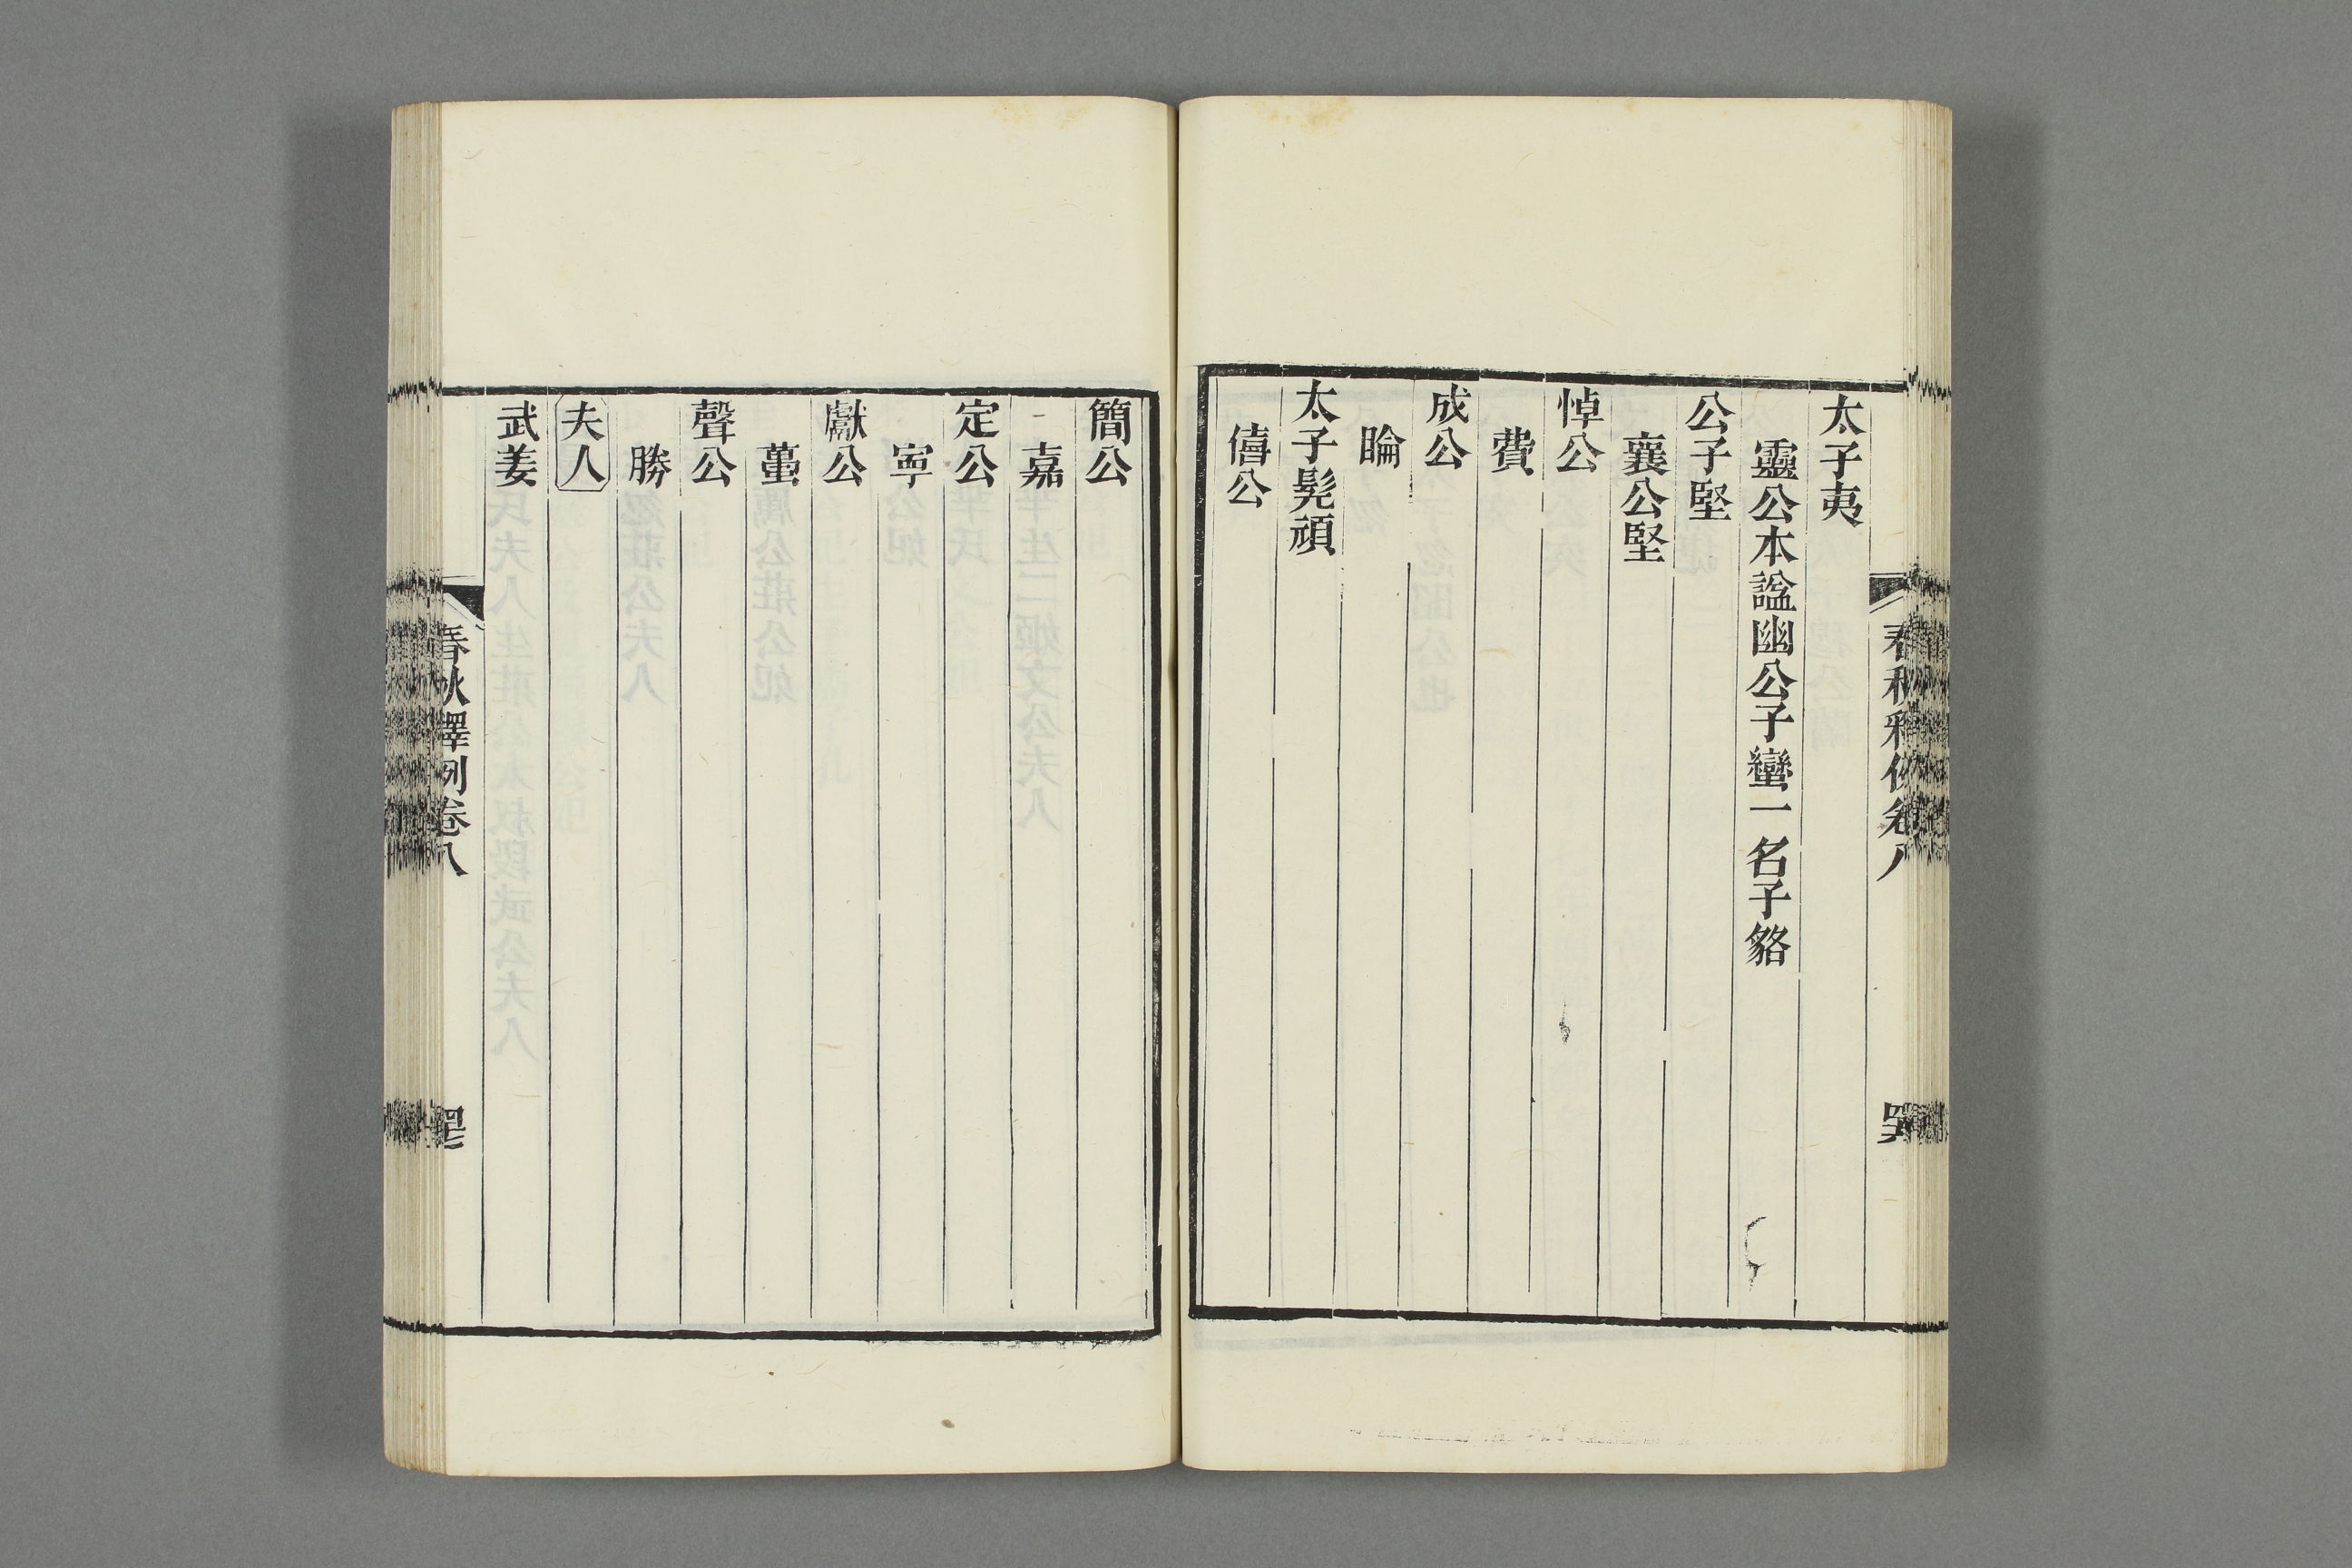 太子夷
靈公本諡幽公子蠻一名子貉
公子堅
襄公堅
悼公
費
成公
睔
太子髡頑
僖公
簡公
嘉
定公
寍
獻公
蠆
聲公
勝
夫人
武姜
春秋釋例卷八